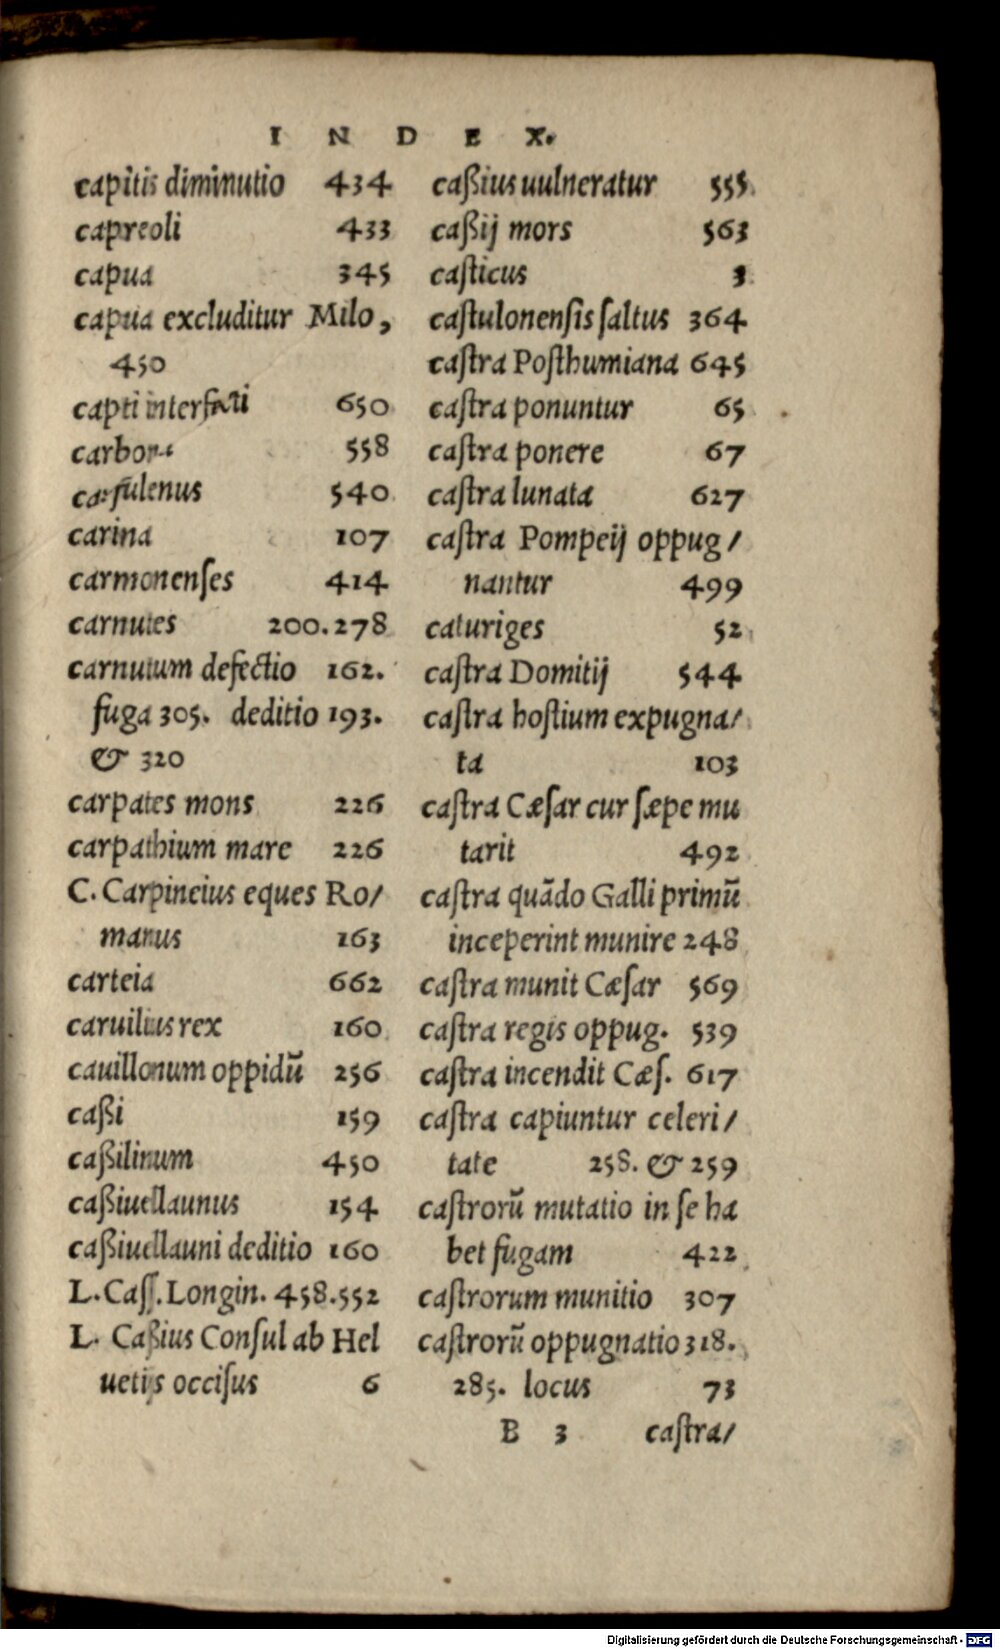 INDEX.
capitis diminutio 434
capreoli 433
capua 345
capua excluditur Milo,
450
capti interfecti 650
carbon 558
carfulenus 540
carina 107
carmonenses 414
carnutes 200.278
carnutum defectio 162.
fuga 305. deditio 193.
& 320
carpates mons 226
carpathium mare 226
C. Carpineius eques Ro/
manus 163
carteia 662
caruilius rex 160
cauillonum oppidū 256
caßi 159
caßilinum 450
caßiuellaunus 154
caßiuellauni deditio 160
L. Caſſ. Longin. 458.552
L. Caßius Conſul ab Hel
uetijs occiſus 6
caßius uulneratur 555
caßij mors 563
caſticus 3
caſtulonenſis ſaltus 364
caſtra Poſthumiana 645
caſtra ponuntur 65
caſtra ponere 67
caſtra lunata 627
caſtra Pompeij oppug/
nantur 499
caturiges 52
caſtra Domitij 544
caſtra hoſtium expugna/
ta 103
caſtra Cæſar cur ſæpe mu
tarit 492
caſtra quādo Galli primū
inceperint munire 248
caſtra munit Cæſar 569
caſtra regis oppug. 539
caſtra incendit Cæſ. 617
caſtra capiuntur celeri/
tate 258. & 259
caſtrorū mutatio in ſe ha
bet fugam 422
caſtrorum munitio 307
caſtrorū oppugnatio 318.
285. locus 73
B 3 caſtra/
Digitalisierung gefördert durch die Deutsche Forschungsgemeinschaft - DFG